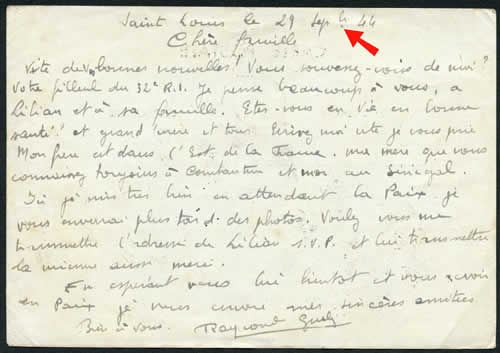 Saint Louis le 29 Sept 44
Chère famille
Vite de vos bonnes nouvelles! Vous souvenez-vous de moi?
Votre filleul du 32e R.I. Je pense beaucoup à vous, à
Lilian et à sa famille. Etes-vous en vie en bonne
santé! et grand'mère et tous. Ecrivez moi vite je vous prie
Mon frère est dans l'Est de la France, ma mère que vous
connaissez toujours à Constantine et moi au Sénégal.
Ici je suis très bien en attendant la Paix. je
vous enverrai plus tard des photos. Voulez vous me
transmettre l'adresse de Lilian S.V.P. et lui transmettre
la mienne aussi merci.
En espérant vous lire bientôt et vous revoir
en Paix je vous envoie mes sincères amitiés
Bien à vous. Raymond